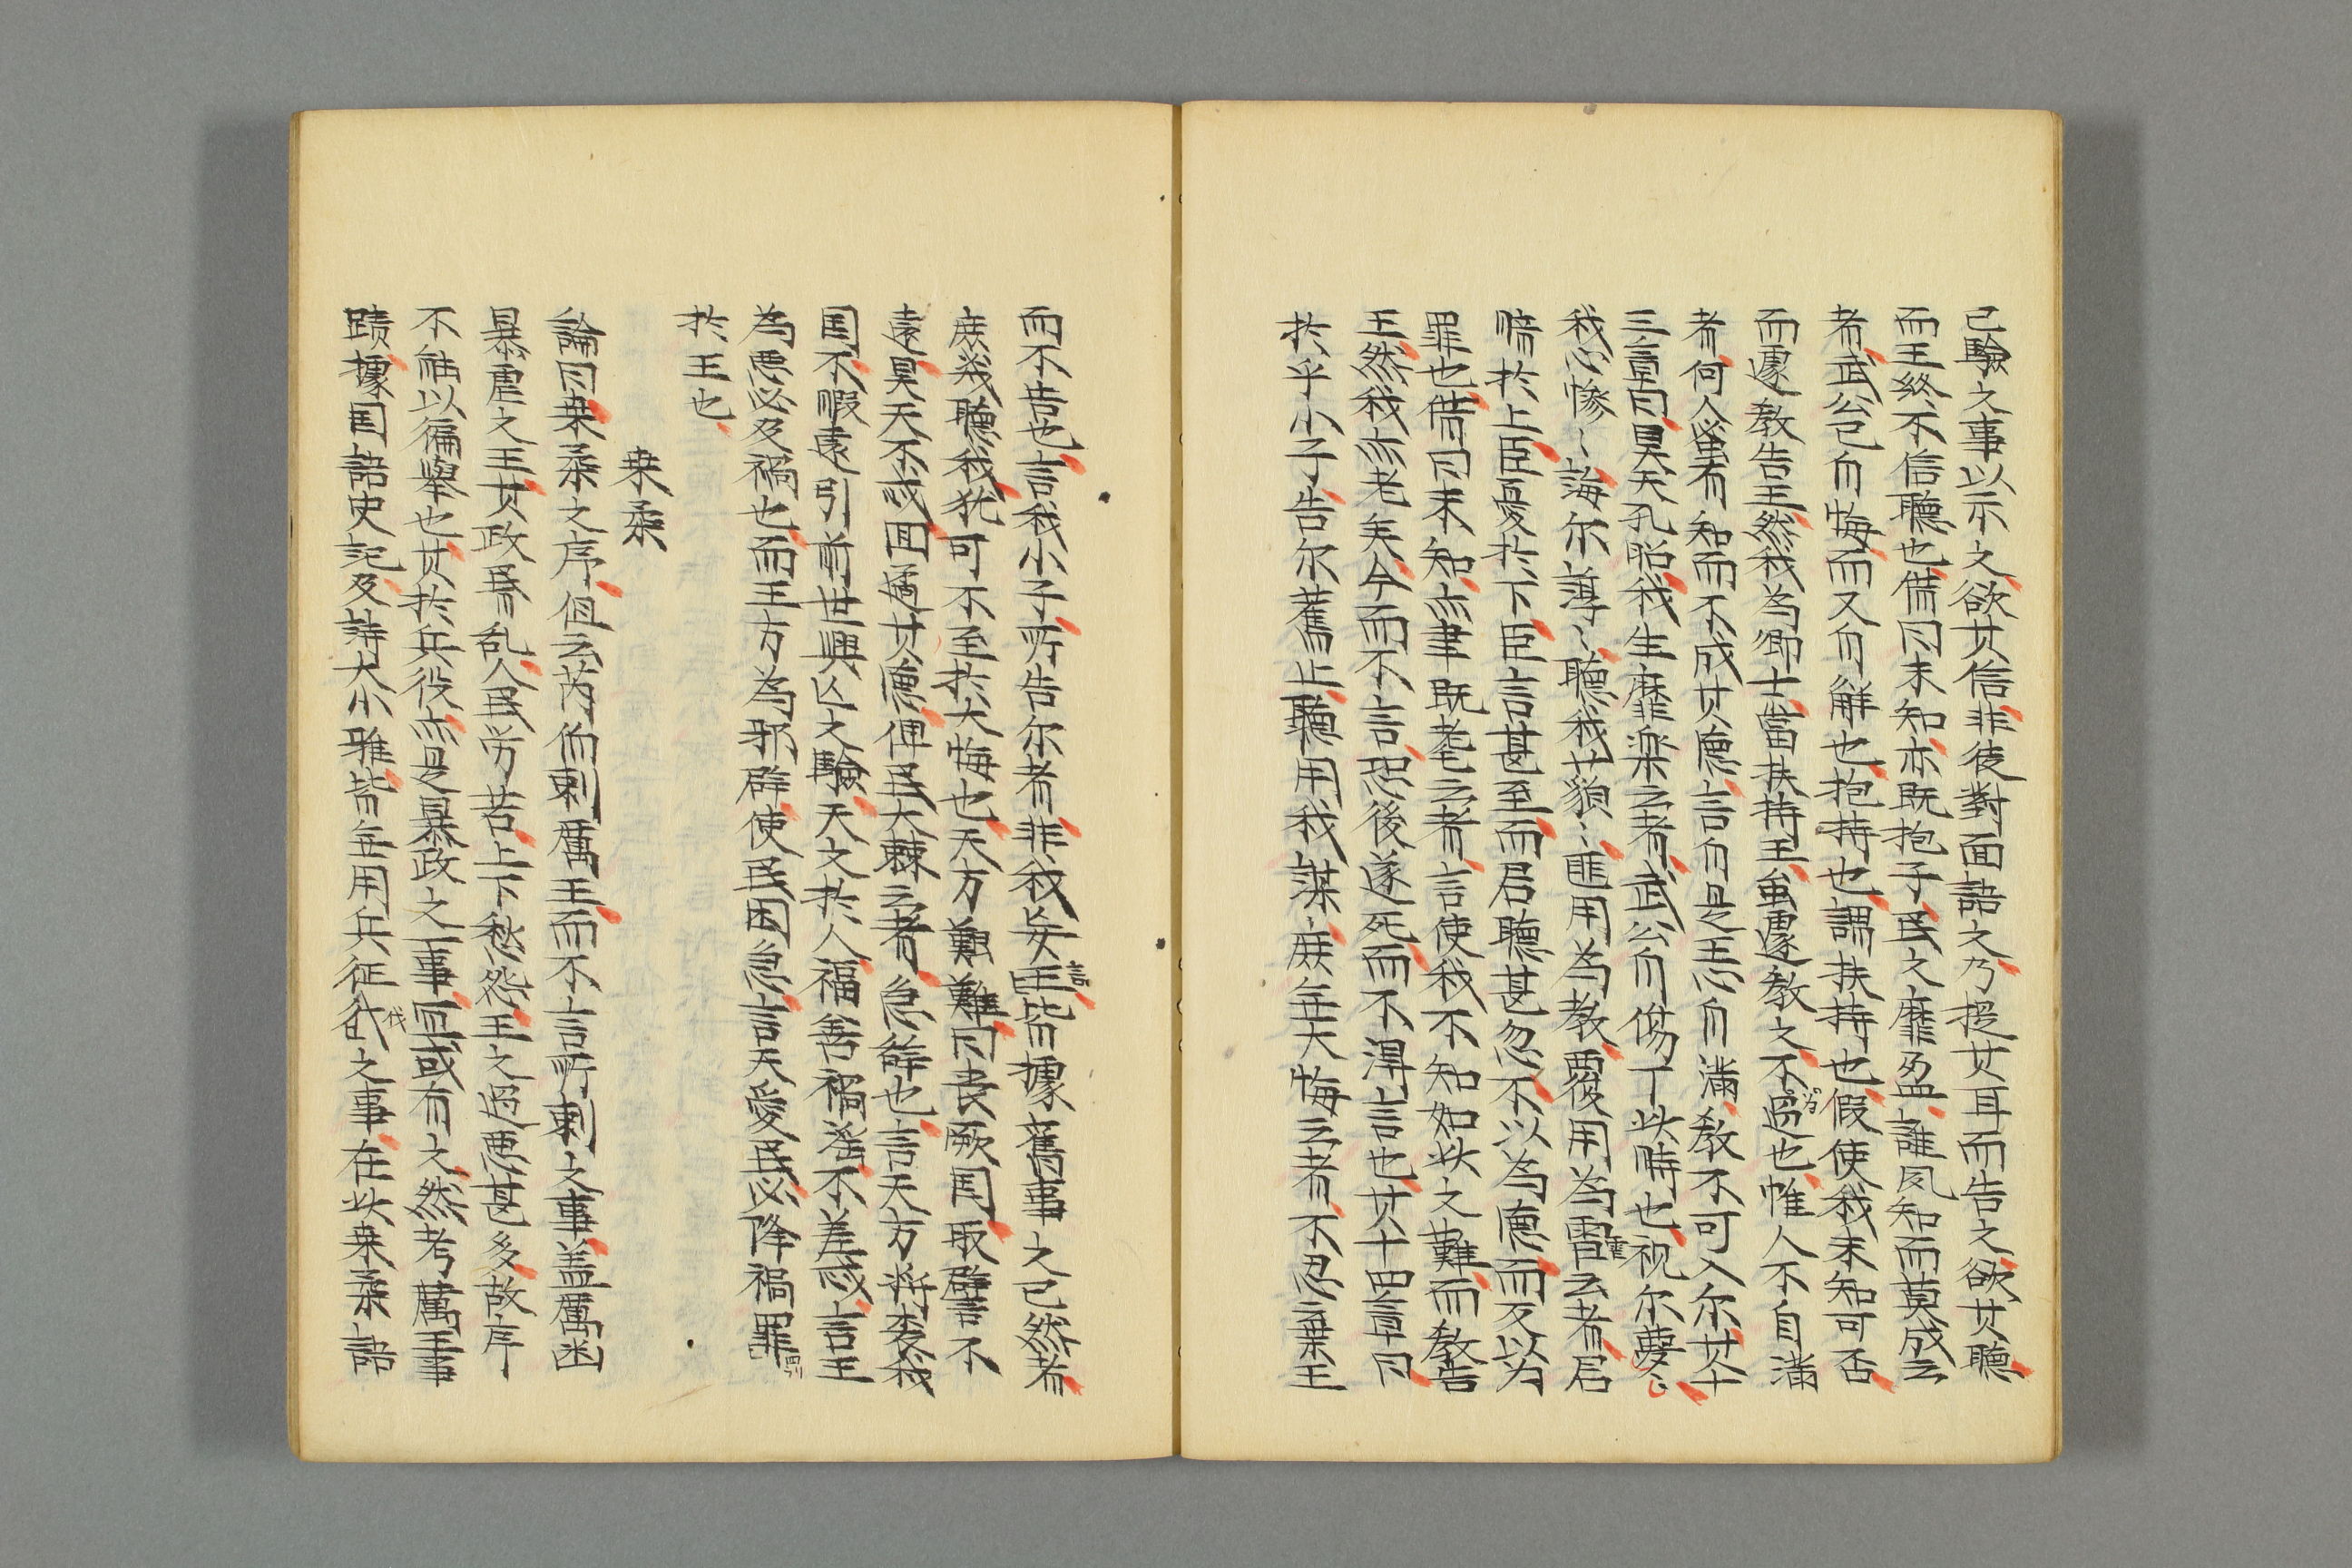 已驗之事以示之欲其信非徒對面語之乃提其耳而告之欲其聽
而王終不信聽也借曰未知亦既抱子民之靡盈誰夙知而莫成云
者武公已自悔而又自解也抱持也謂扶持也假使我未知可否
而遽教告王然我為卿士當扶持王虽遽教之不為過也惟人不自滿
者何人蚤有知而不成其德言自是王心自滿教不可入尔其十
三章曰昊天孔昭我生靡楽云者武公自傷丁此時也視尔夢〻
我心慘〻誨尔諄〻聽我藐〻匪用為教覆用為虐云者君
暗於上臣憂於下臣言甚至而君聽甚忽不以為德而反以為
罪也借曰未知亦聿既耄云者言使我不知如此之難而教告
王然我亦老矣今而不言恐後遂死而不淂言也其十四章曰
於乎小子告尔舊止聽用我謀庶無大悔云者不忍棄王
而不告也言我小子所告尔者非我妄言皆據舊事之已然者
庶幾聽我猶可不至於大悔也天方艱難曰喪厥国取譬不
遠昊天不忒回遹其德俾民大棘云者急辭也言天方將喪我
国不暇遠引前世興亡之驗天之於人福善禍淫不差忒言王
為悪必及禍也而王方為邪僻使民困急言天愛民必降禍罰
於王也
桒柔
論曰桒柔之序但云芮伯刺厲王而不言所刺之事盖厲王凶
暴虐之王其政昏乱人民労苦上下愁怨王之過悪甚多故序
不能以徧舉也其於兵役亦是暴政之一事宜或有之然考厲王事
蹟據国語史記及詩大小雅皆無用兵征伐之事在此桒柔語